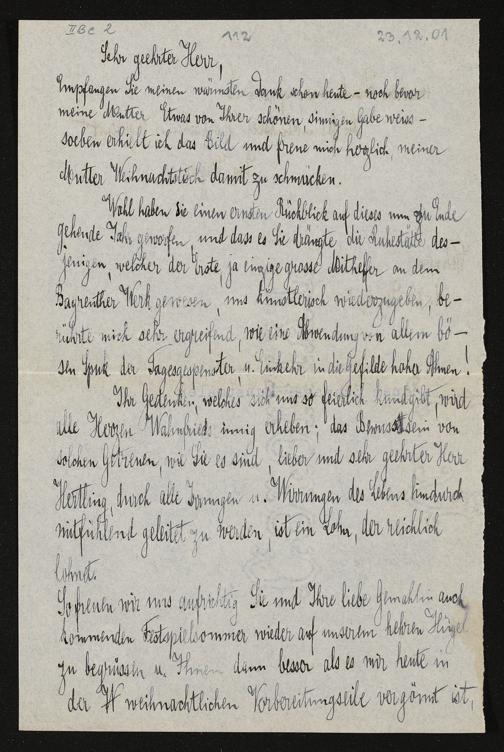 II Be 2 112 23.12.01
Sehr geehrter Herr,
Empfangen Sie meinen wärmsten Dank schon heute – noch bevor
meine Mutter Etwas von Ihrer schönen, sinnigen Gabe weiss –
soeben erhielt ich das Bild und freue mich herzlich, meiner
Mutter Weihnachtstisch damit zu schmücken.
Wohl haben Sie einen ernsten Rückblick auf dieses nun zu Ende
gehende Jahr geworfen, und dass es Sie drängte die Ruhestätte des-
jenigen, welcher der Erste, ja einzige grosse Mithelfer an dem
Bayreuther Werk gewesen, uns künstlerisch wiederzugeben, be-
rührte mich sehr ergreifend, wie eine Abwendung von allem bö-
sen Spuk der Tagesgespenster, u. Einkehr in die Gefilde hoher Ahnen!
Ihr Gedenken, welches sich uns so feierlich kundgibt, wird
alle Herzen Wahnfrieds innig erheben; das Bewusstsein von
solchen Getreuen, wie Sie es sind, lieber und sehr geehrter Herr
Hertling, durch alle Irrungen u. Wirrungen des Lebens hindurch
mitfühlend geleitet zu werden, ist ein Lohn, der reichlich
lohnet.
So freuen wir uns aufrichtig Sie und Ihre liebe Gemahlin auch
kommenden Festspielsommer wieder auf unserem hehren Hügel
zu begrüssen u. Ihnen dann besser als es mir heute in
der W weihnachtlichen Vorbereitungseile vergönnt ist,